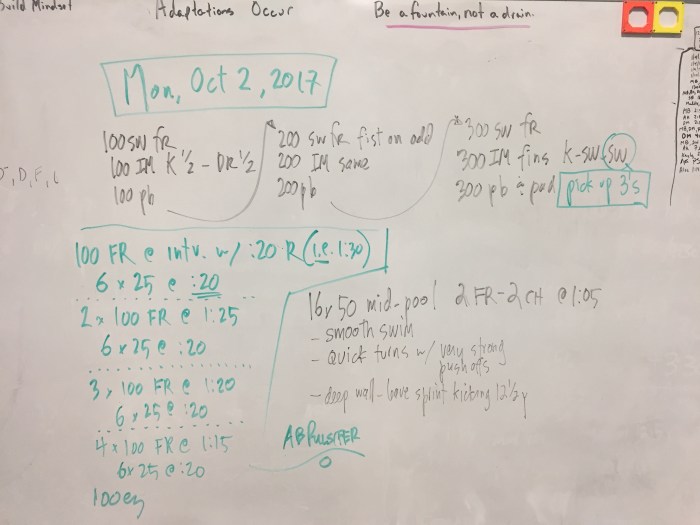 Build Mindset
Adaptations Occur
Be a fountain, not a drain.
Mon, Oct 2, 2017
100 SW FR
100 IM K ½ - DR ½
100 pb
200 SW FR fist on odd
200 IM same
200 pb
300 SW FR
300 IM fins K-SW-SW
300 pb + pad pick up 3's
100 FR @ intv. w/ :20 R (i.e. 1:30)
6 x 25 @ :20
2 x 100 FR @ 1:25
6 x 25 @ :20
3 x 100 FR @ 1:20
6 x 25 @ :20
4 x 100 FR @ 1:15
6 x 25 @ :20
100 ez
16 x 50 mid-pool 2 FR-2 CH @ 1:05
- smooth swim
- Quick turns w/ very strong
push offs
- deep wall-leave sprint kicking 12½ y